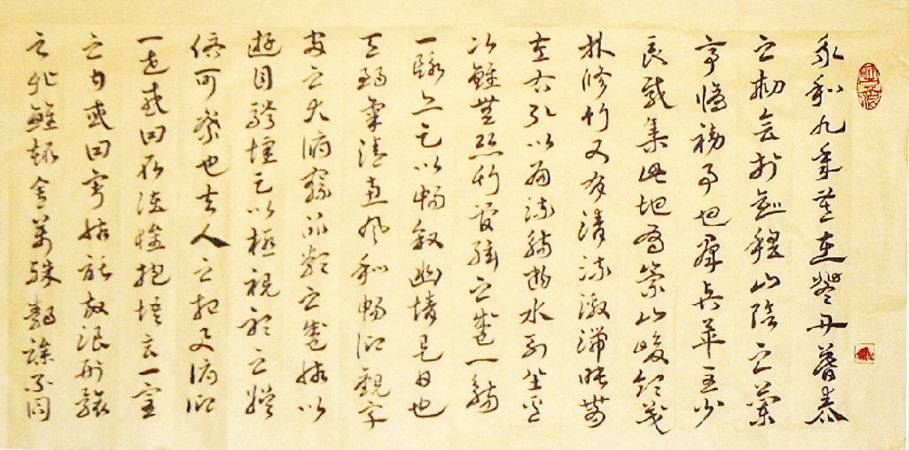 永和九年歲在癸丑暮春
之初會於會稽山陰之蘭
亭脩禊事也羣賢畢至少
長咸集此地有崇山峻領茂
林修竹又有清流激湍映帶
左右引以為流觴曲水列坐其
次雖無絲竹管絃之盛一觴
一詠亦足以暢敘幽情是日也
天朗氣清惠風和暢仰觀宇
宙之大俯察品類之盛所以
遊目騁懷足以極視聽之娛
信可樂也夫人之相與俯仰
一世或因取諸懷抱悟言一室
之內或因寄所託放浪形骸
之外雖趣舍萬殊靜躁不同